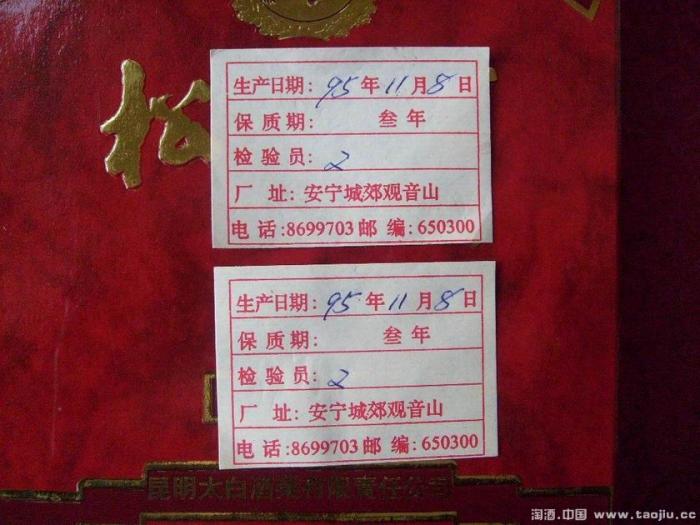 松
生产日期: 95年11月8日
保质期: 叁年
检验员: 2
厂 址: 安宁城郊观音山
电 话:8699703 邮 编:650300
生产日期: 95年11月8日
保质期: 叁年
检验员: 2
厂 址: 安宁城郊观音山
电 话:8699703 邮 编:650300
昆明太白酒业有限责任公司
淘酒.中国 www.taojiu.cc